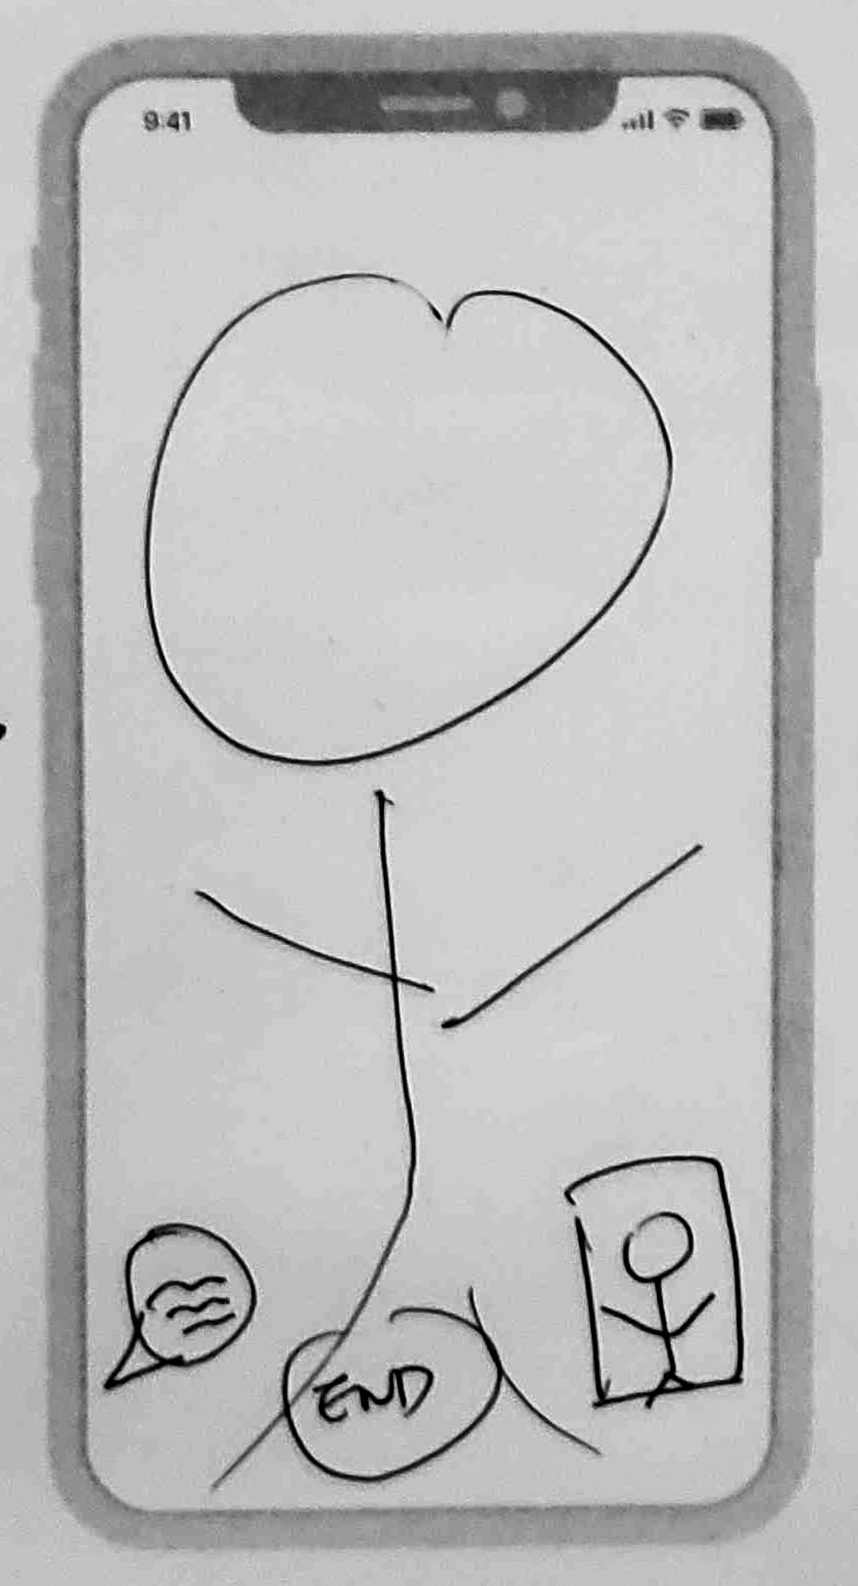 9:41
END